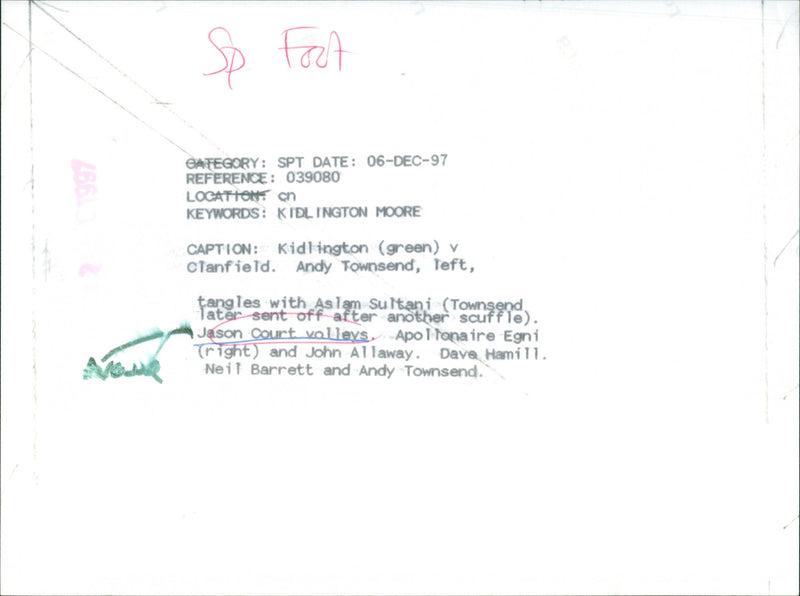 Sp Foot
CATEGORY: SPT DATE: 06-DEC-97
REFERENCE: 039080
LOCATION: cn
KEYWORDS: KIDLINGTON MOORE
CAPTION: Kidlington (green) v
Clanfield. Andy Townsend, left,
tangles with Aslam Sultani (Townsend
later sent off after another scuffle).
Jason Court volleys. Apollonaire Egni
(right) and John Allaway. Dave Hamill.
Neil Barrett and Andy Townsend.
1997